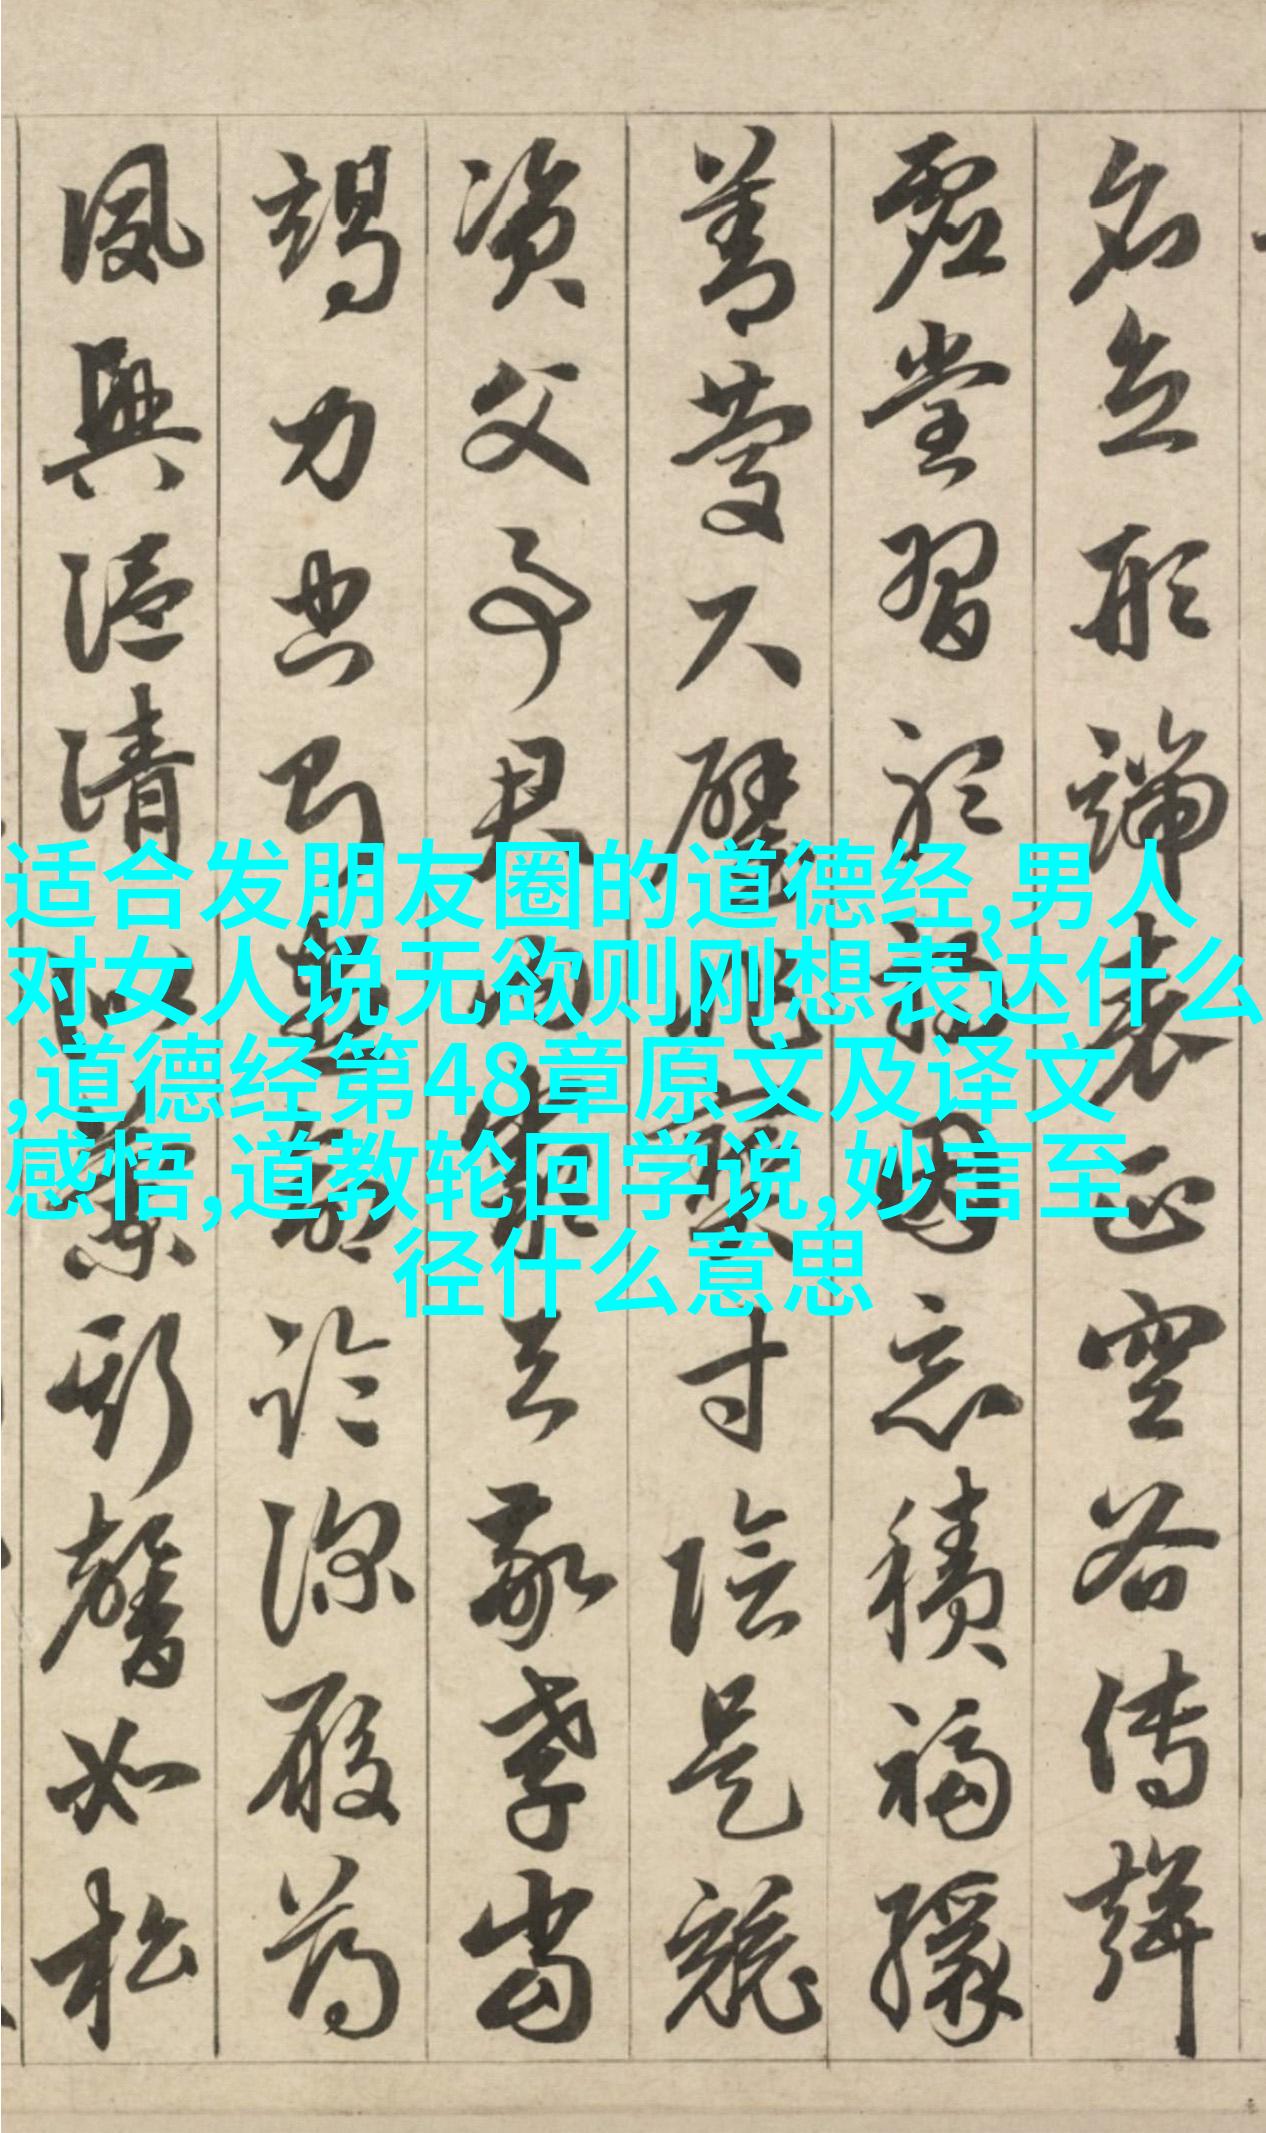 名立形端表正空谷傳聲
虛堂習聽禍因惡積福緣
善慶尺璧非寶寸陰是競
資父事君曰嚴与敬孝當
竭力忠則盡命臨深履薄
夙興溫清似蘭斯馨如松
适合发朋友圈的道德经,男人
对女人说无欲则刚想表达什么
,道德经第48章原文及译文
感悟,道教轮回学说,妙言至
径什么意思